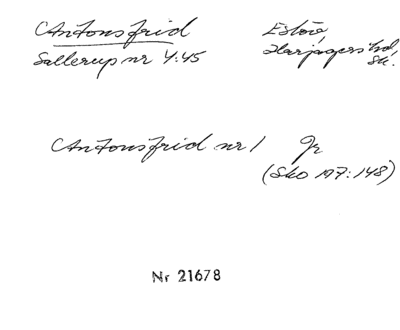 Antonsfrid
Sallerup nr 4:45
Eslöv,
Harjagers hd,
Sk.
Antonsfrid nr 1 Jr
(Sko 197:148)
Nr 21678